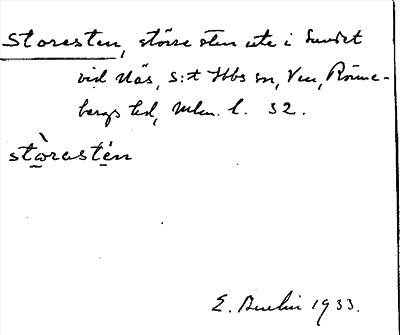 Storesten, större sten ute i Sundet
vid Näs, S:t Ibbs sn, Ven, Rönne-
bergs hd, Mlm. l. 32.
stòrastén
E. 1933.